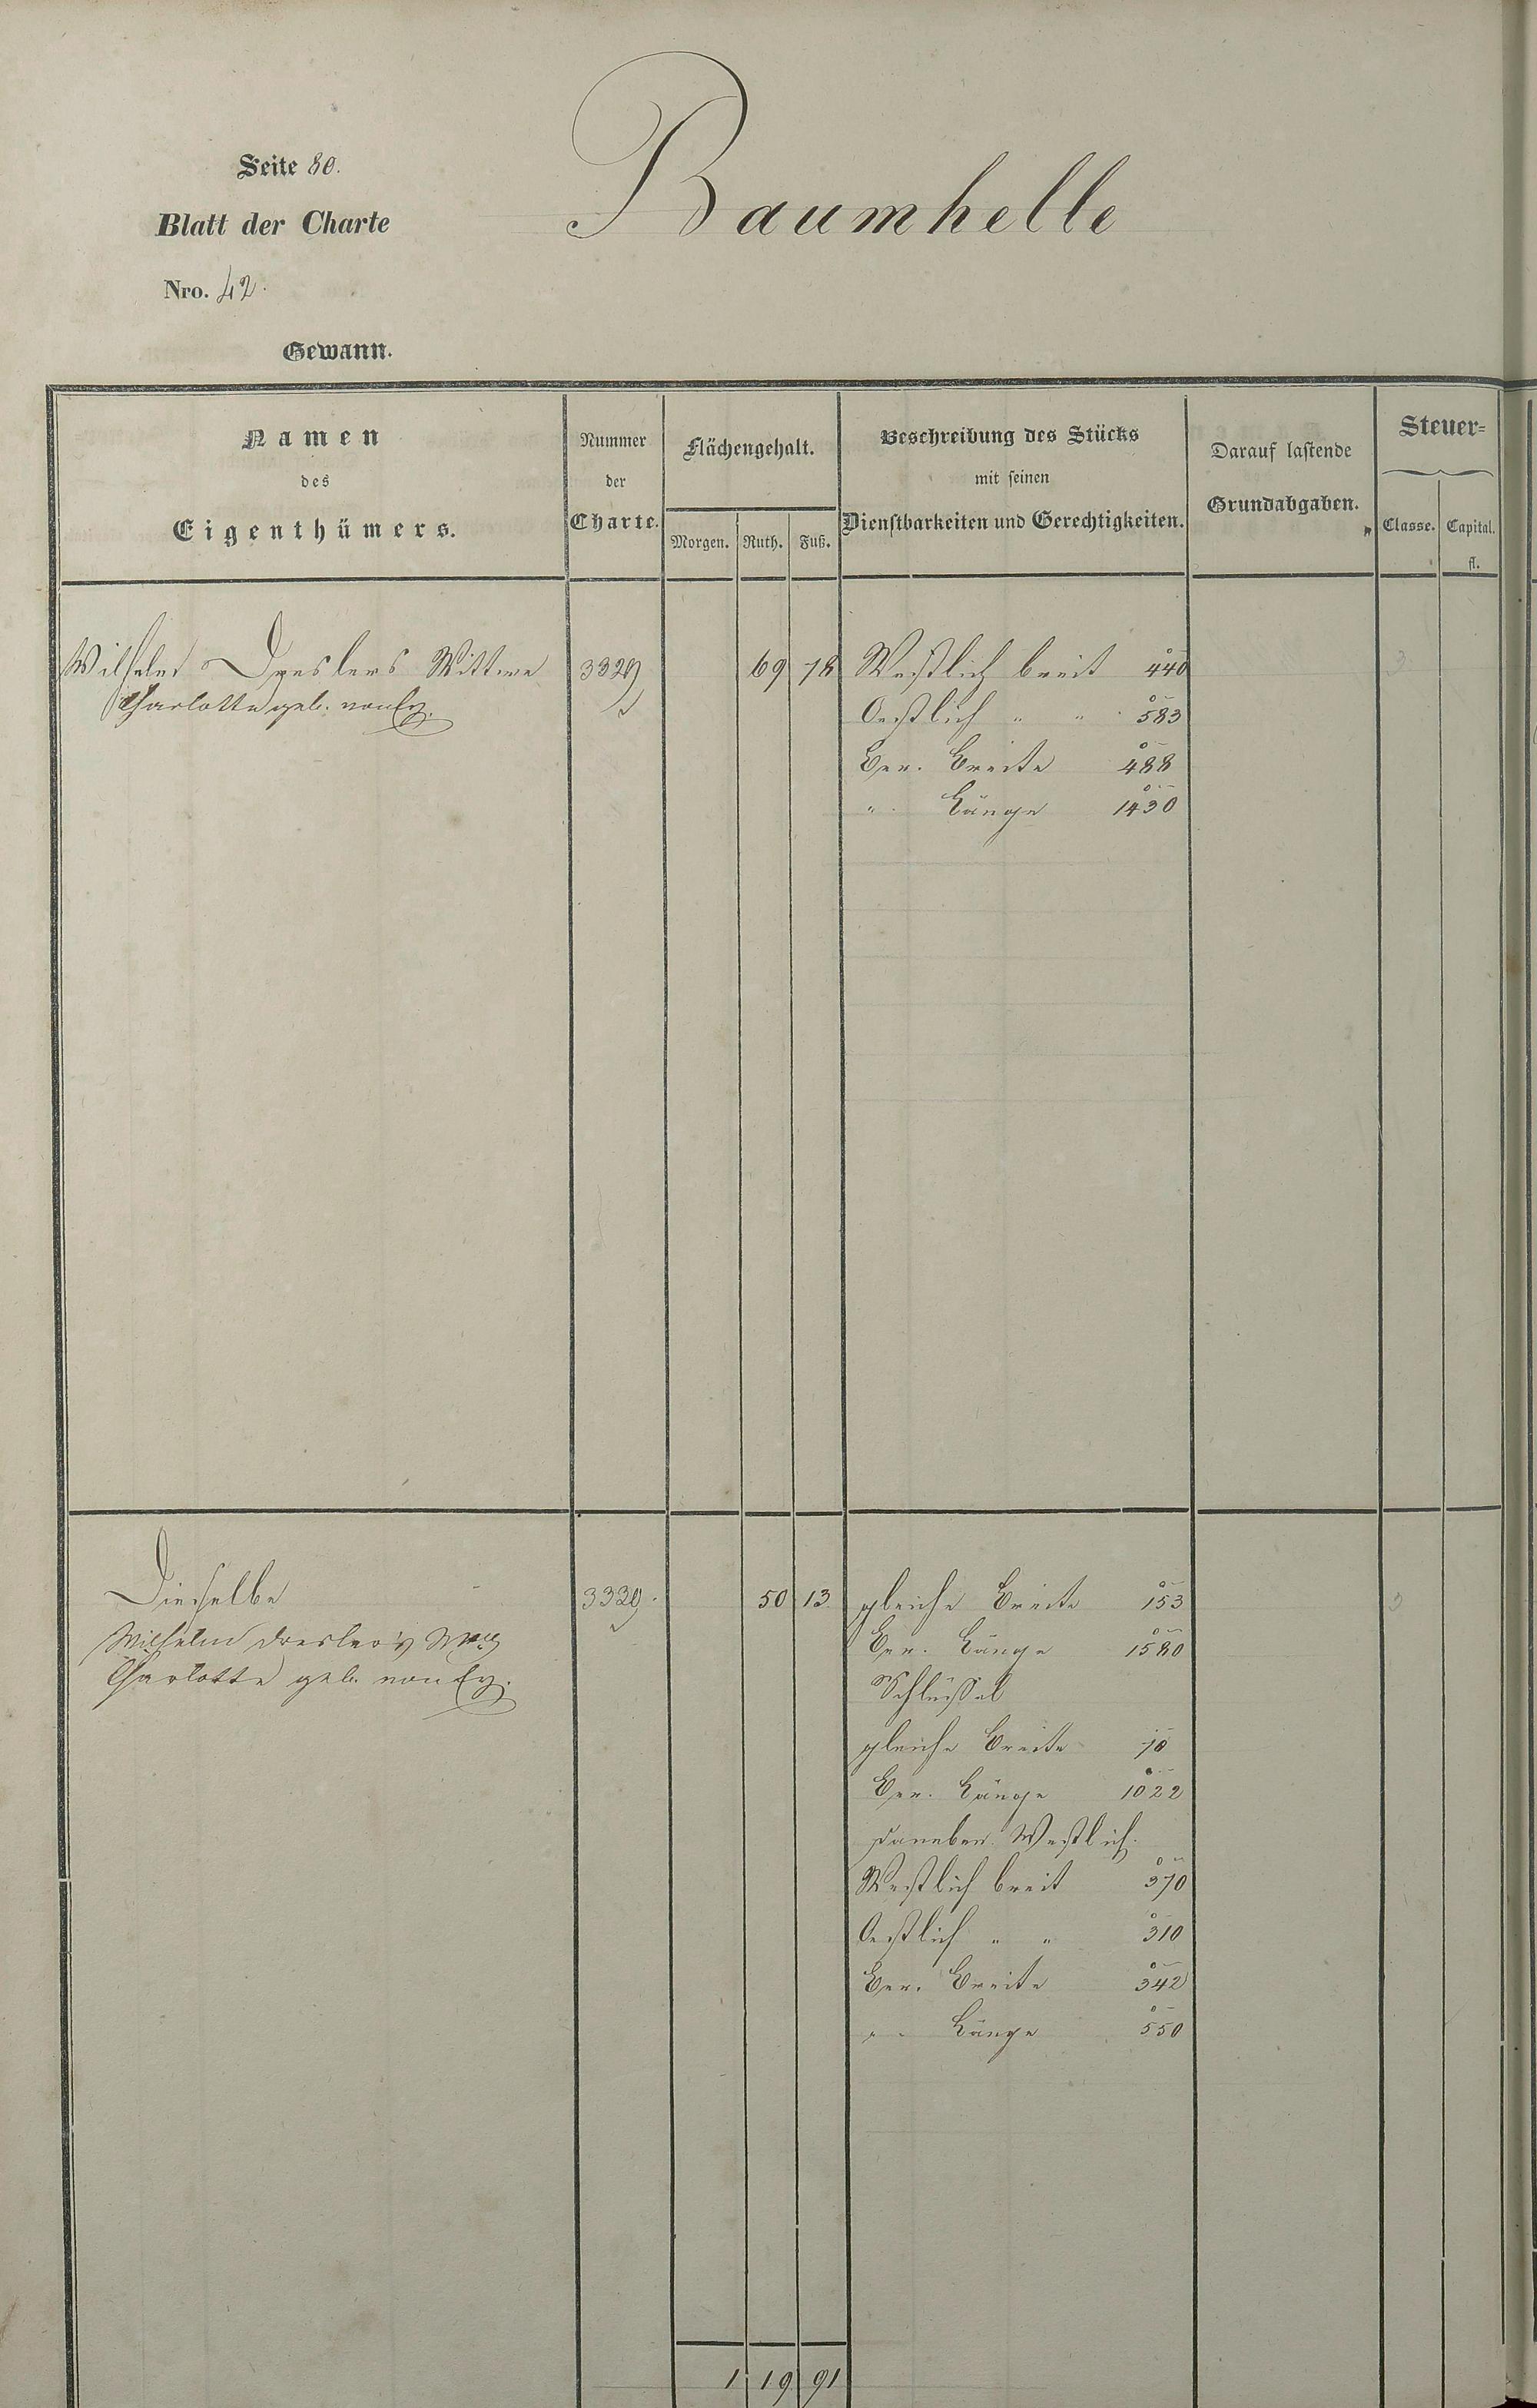 Seite 80.
Blatt der Charte
Nro. 42.
Gewann.
Baumhelle
Namen
des
Eigenthümers.
Nummer
der
Charte.
Flächengehalt.
Morgen. Ruth. Fuß.
Beschreibung des Stücks
mit seinen
Dienstbarkeiten und Gerechtigkeiten.
Darauf lastende
Grundabgaben.
Steuer=
Classe. Capital.
fl.
Wilhelm Dreslers Wittwe 3329 69 78 Westlich breit 440 3
Charlotte geb. von
Oestlich " " 583
Ber. Breite 488
" Länge 1430
Dieselbe 3330. 50 13 gleiche Breite 153 3
Wilhelm Dresler's
Charlotte geb. von
Ber. Länge 1580
Schlüssel
gleiche Breite 70
Ber. Länge 1022
daneben Westlich.
Westlich breit 370
Oestlich " " 310
Ber. Breite 342
" Länge 550
1 19 91